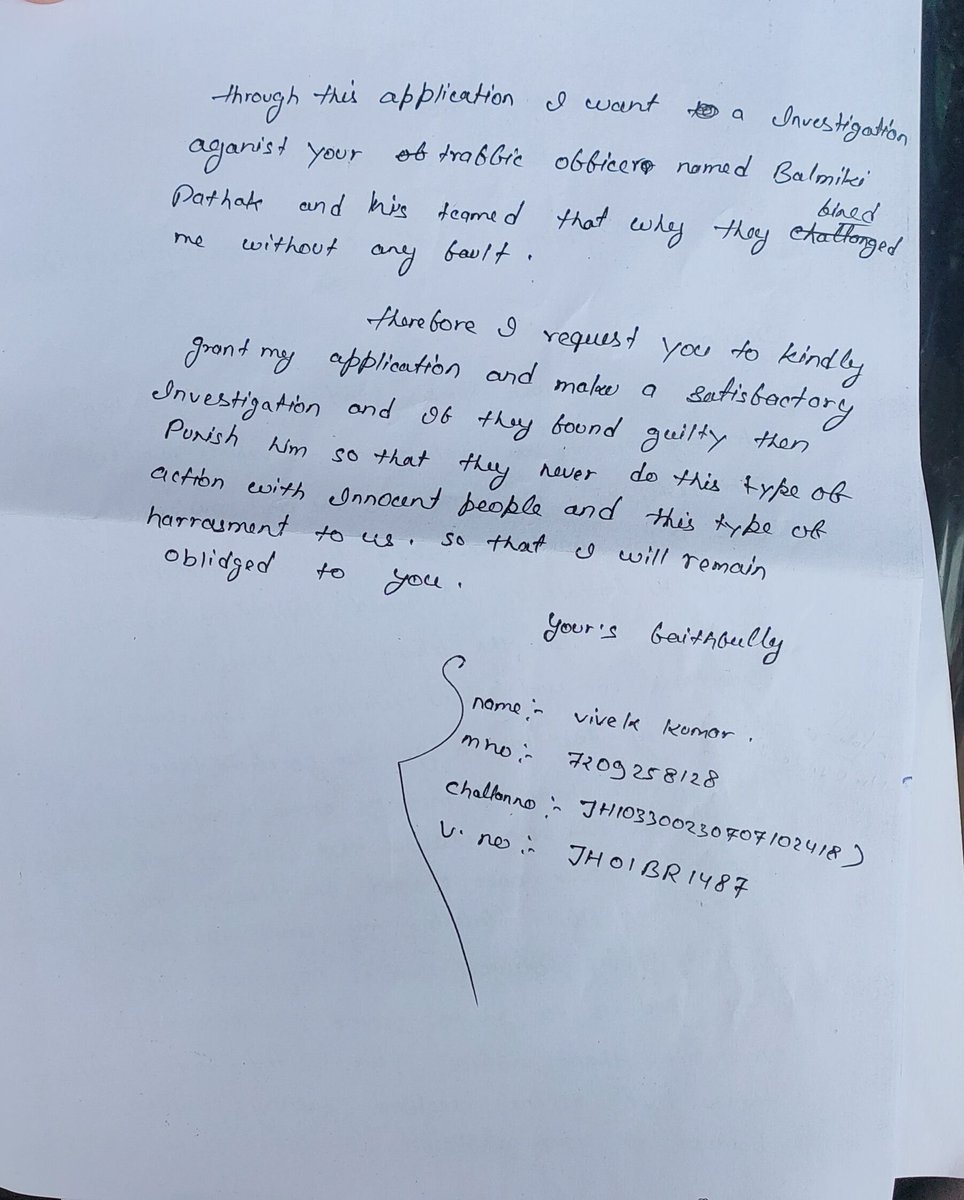 through this application I want to a Investigation
aganist your of traffic officers named Balmiki
Pathak and his teamed that why they challenged fined
me without any fault.
therefore I request you to kindly
grant my application and make a satisfactory
Investigation and If they found guilty then
Punish him so that they never do this type of
action with Innocent people and this type of
harrasment to us. so that I will remain
oblidged to you.
Your's faithfully
name:- vivek kumar.
mno:- 7209258128
challanno:- JH10330023070710241 8)
V. no:- JH01BR1487